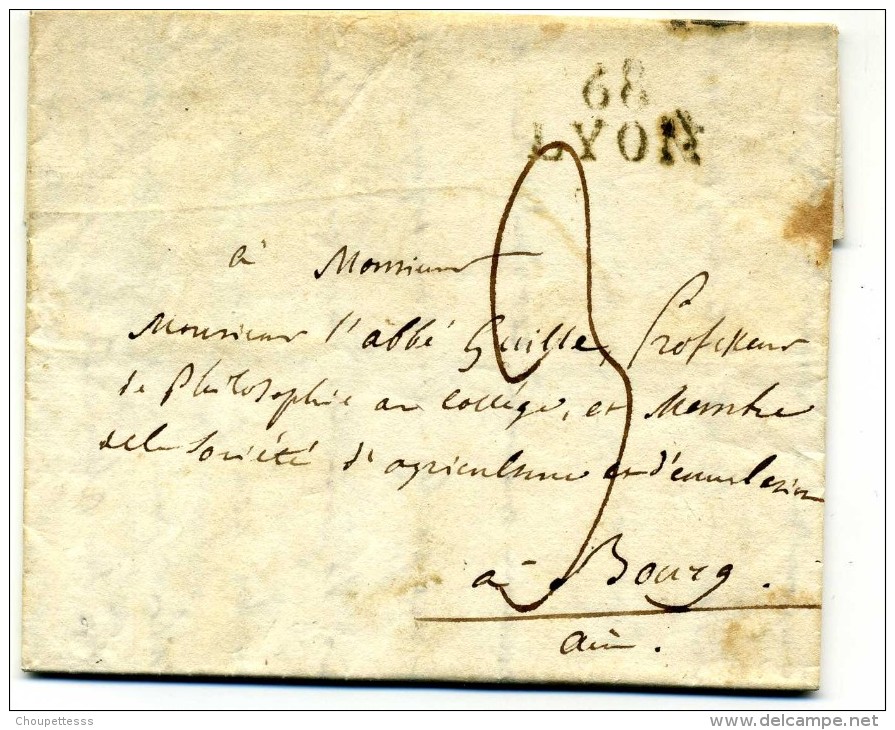 68
LYON
à Monsieur
Monsieur l'abbé Guille, Professeur
de Philosophie au Collége, et Membre
de la Société d'agriculture et d'émulation
3
à Bourg.
ain.
Choupettesss
www.delcampe.net